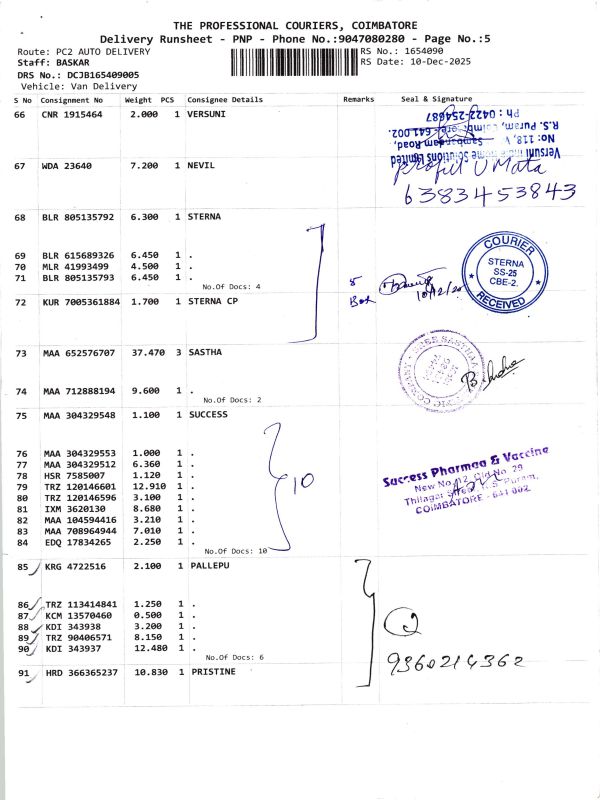 THE PROFESSIONAL COURIERS, COIMBATORE
Delivery Runsheet - PNP - Phone No.:9047080280 - Page No.:5
Route: PC2 AUTO DELIVERY RS No.: 1654090
Staff: BASKAR RS Date: 10-Dec-2025
DRS No.: DCJB165409005
Vehicle: Van Delivery
S No Consignment No Weight PCS Consignee Details Remarks Seal & Signature
66 CNR 1915464 2.000 1 VERSUNI
Ph : 0422-254687
R.S. Puram, Coimbatore-641 002.
No: 118, V Sambandam Road,
Versuni Solutions Limited
67 WDA 23640 7.200 1 NEVIL
6383453843
68 BLR 805135792 6.300 1 STERNA
69 BLR 615689326 6.450 1 .
70 MLR 41993499 4.500 1 .
71 BLR 805135793 6.450 1 .
No.Of Docs: 4
5
COURIER
STERNA
SS-25
CBE-2.
RECEIVED
72 KUR 7005361884 1.700 1 STERNA CP
73 MAA 652576707 37.470 3 SASTHA
74 MAA 712888194 9.600 1 .
No.Of Docs: 2
75 MAA 304329548 1.100 1 SUCCESS
76 MAA 304329553 1.000 1 .
77 MAA 304329512 6.360 1 .
78 HSR 7585007 1.120 1 .
79 TRZ 120146601 12.910 1 .
80 TRZ 120146596 3.100 1 .
81 IXM 3620130 8.680 1 .
82 MAA 104594416 3.210 1 .
83 MAA 708964944 7.010 1 .
84 EDQ 17834265 2.250 1 .
No.Of Docs: 10
10
Success Pharmaa & Vaccine
New No. 12, Old No. 29
Thilagar Street, R.S. Puram,
COIMBATORE - 641 002
85 KRG 4722516 2.100 1 PALLEPU
86 TRZ 113414841 1.250 1 .
87 KCM 13570460 0.500 1 .
88 KDI 343938 3.200 1 .
89 TRZ 90406571 8.150 1 .
90 KDI 343937 12.480 1 .
No.Of Docs: 6
9360214362
91 HRD 366365237 10.830 1 PRISTINE